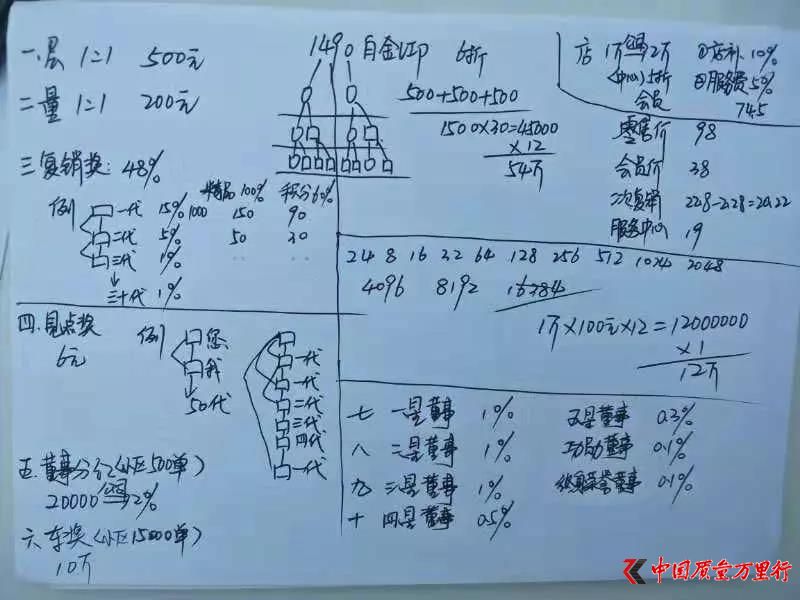 一.层 1:1 500元
二量 1:1 200元
三复销奖: 48%
精品100% 积分60%
例 一代 15% 1000 150 90
二代 5% 50 30
三代 1%
三十代 1%
四.见点奖
6元
例 您
我
50代
一代
一代
二代
三代
四代
一代
五.董事分红(小区500单)
20000 2%
六车奖(小区15000单)
10万
1490 白金VIP 6折
500+500+500
1500×30=45000
×12
54万
店 1万 2万 ①店补10%
(中心)5折 ②服务费5%
会员 745
零售价 98
会员价 38
二次复销 228-2.28=
服务中心 19
2 4 8 16 32 64 128 256 512 1024 2048
4096 8192 16384
1万×100元×12=12000000
×1
12万
七 一星董事 1% 五星董事 0.3%
八 二星董事 1% 功勋董事 0.1%
九 三星董事 1% 终身荣誉董事 0.1%
十 四星董事 0.5%
中国质量万里行